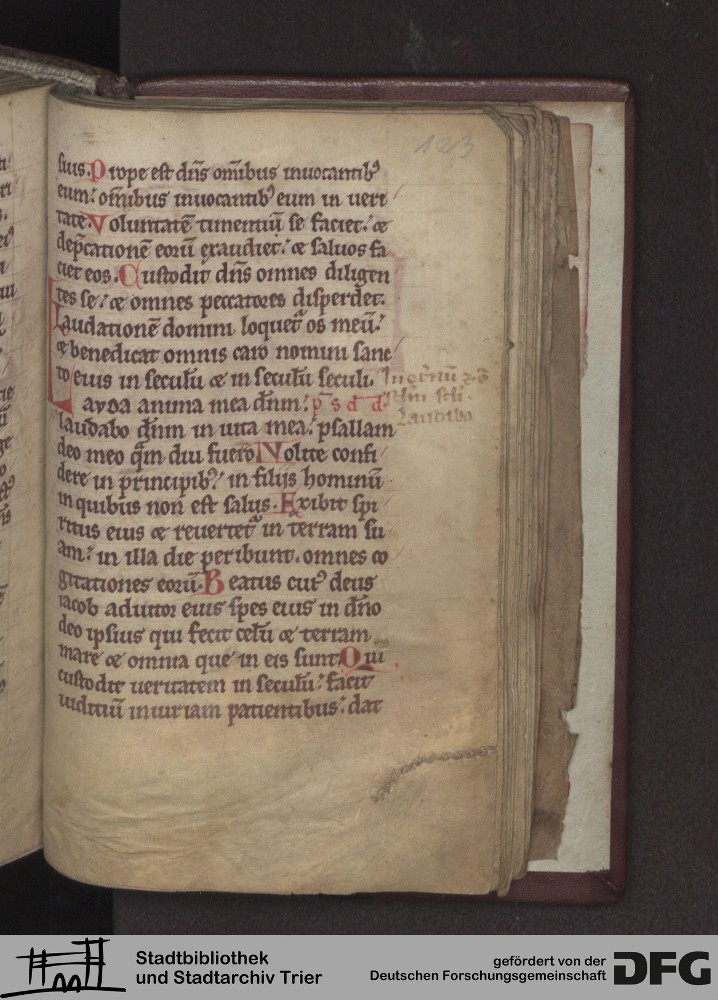 123
suis. Prope est dn̄s om̄ibus inuocantibꝰ
eum: om̄ibus inuocantibꝰ eum in ueri
tate. Voluntatē timentiū se faciet: ⁊
dep̄cationē eorū exaudiet: ⁊ saluos fa
ciet eos. Custodit dn̄s omnes diligen
tes se: ⁊ omnes peccatores disperdet.
Laudationē domini loquet᷑ os meū:
⁊ benedicat omnis caro nomini sanc
to eius in seculū ⁊ in seculū seculi.
Lauda anima mea dn̄m: p̄ s d d
laudabo dn̄m in uita mea: psallam
deo meo qm̄ diu fuero. Nolite confi
dere in principibꝰ: in filijs hominū
in quibus non est salus. Exibit spi
ritus eius ⁊ reuertet᷑ in terram su
am: in illa die peribunt omnes co
gitationes eorū. Beatus cuiꝰ deus
iacob adiutor eius spes eius in dn̄o
deo ipsius qui fecit celū ⁊ terram
mare ⁊ omnia que in eis sunt. Qui
custodit ueritatem in seculū: facit
iudiciū iniuriam patientibus: dat
In et̄nū
Laudabo
Stadtbibliothek
und Stadtarchiv Trier
gefördert von der
Deutschen Forschungsgemeinschaft
DFG